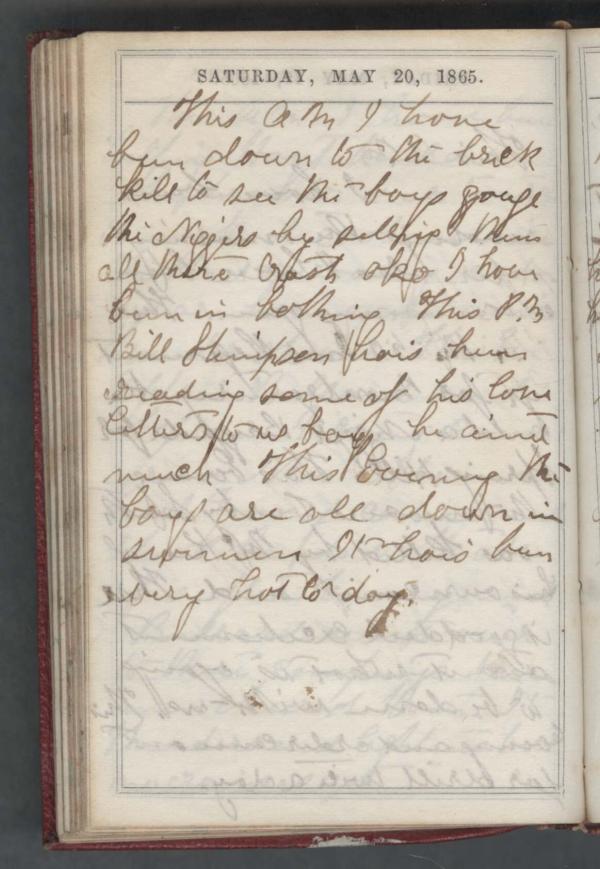 SATURDAY, MAY 20, 1865.
This A M I have
bin down to the brick
kill to see the boys gouge
the Niggers by selling them
all there trash also I have
bin in bathing This P.M
Bill Stimpson hais bin
reading some of his love
letters to us boys he aint
much This Evening the
boys are all down in
swimen It hais bin
very hot to day.